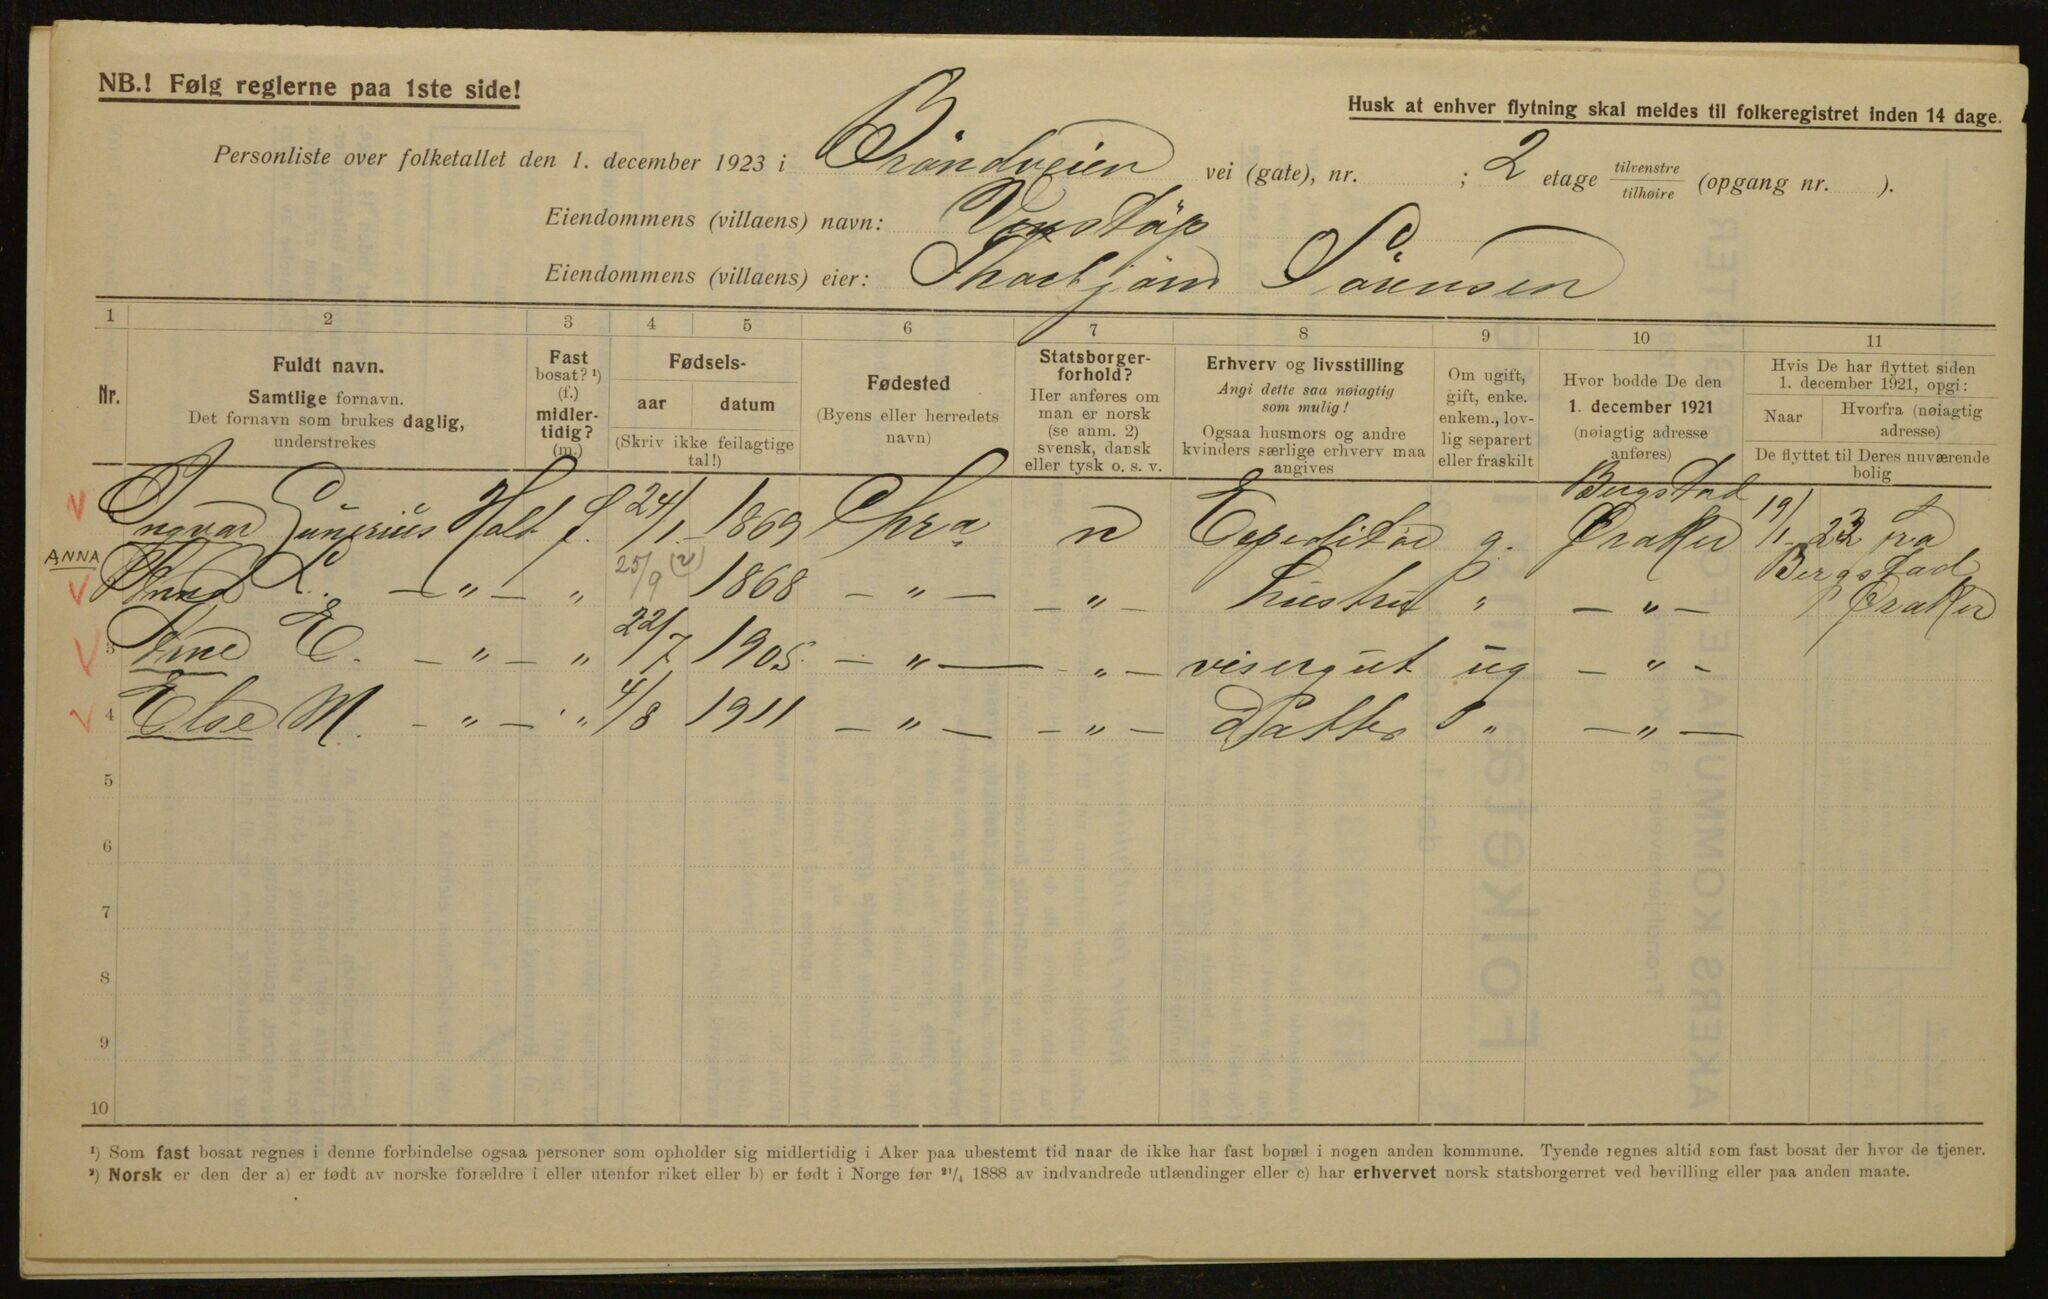 NB.! Følg reglerne paa 1ste side!
Husk at enhver flytning skal meldes til folkeregistret inden 14 dage.
Personliste over folketallet den 1. december 1923 i Bröndveien vei (gate), nr. ; 2 etage tilvenstre tilhøire (opgang nr. ).
Eiendommens (villaens) navn:
Eiendommens (villaens) eier: Thorbjörn Sörensen
1 2 3 4 5 6 7 8 9 10 11
Nr.
Fuldt navn.
Samtlige fornavn.
Det fornavn som brukes daglig,
understrekes
Fast
bosat? ¹)
(f.)
midler-
tidig?
(m.)
Fødsels-
aar datum
(Skriv ikke feilagtige
tal!)
Fødested
(Byens eller herredets
navn)
Statsborger-
forhold?
Her anføres om
man er norsk
(se anm. 2)
svensk, dansk
eller tysk o. s. v.
Erhverv og livsstilling
Angi dette saa nøiagtig
som mulig!
Ogsaa husmors og andre
kvinders særlige erhverv maa
angives
Om ugift,
gift, enke.
enkem., lov-
lig separert
eller fraskilt
Hvor bodde De den
1. december 1921
(nøiagtig adresse
anføres)
Hvis De har flyttet siden
1. december 1921, opgi:
Naar Hvorfra (nøiagtig
adresse)
De flyttet til Deres nuværende
bolig
Bergstad
Ingvar Gunerius Holt f. 24/1 1869 Chra n Expeditør g. Øraker 19/1 23 fra
ANNA
Bergstad
Anna L. — „ — „ 25/9 (?) 1868 — „ — — „ — Hustru „ — „ — Øraker
3 Arne E. — „ — „ 22/7 1905 — „ — „ — visergut ug — „ —
4 Else M. — „ — „ 4/8 1911 — „ — — „ — Datter „ — „ —
5
6
7
8
9
10
¹) Som fast bosat regnes i denne forbindelse ogsaa personer som opholder sig midlertidig i Aker paa ubestemt tid naar de ikke har fast bopæl i nogen anden kommune. Tyende regnes altid som fast bosat der hvor de tjener.
²) Norsk er den der a) er født av norske forældre i eller utenfor riket eller b) er født i Norge før ²¹/₄ 1888 av indvandrede utlændinger eller c) har erhvervet norsk statsborgerret ved bevilling eller paa anden maate.